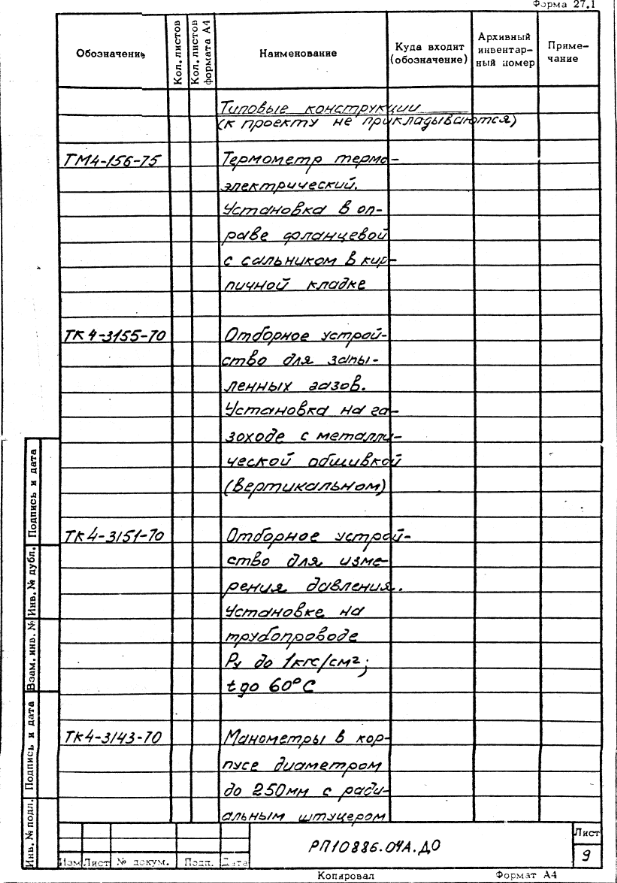 Форма 27.1
Обозначение
Кол. листов
Кол. листов формата А4
Наименование
Куда входит (обозначение)
Архивный инвентар-ный номер
Приме-чание
Типовые конструкции
(к проекту не прикладываются)
ТМ4-156-75 Термометр термо-
электрический.
Установка в оп-
раве фланцевой
с сальником в кир-
пичной кладке
ТК4-3155-70 Отборное устрой-
ство для запы-
ленных газов.
Установка на га-
зоходе с металли-
ческой обшивкой
(вертикальном)
ТК4-3151-70 Отборное устрой-
ство для изме-
рения давления.
Установке на
трубопроводе
Ру до 1кгс/см²;
t до 60°С
ТК4-3143-70 Манометры в кор-
пусе диаметром
до 250мм с ради-
альным штуцером
Инв. № подл.
Подпись и дата
Взам. инв. №
Инв. № дубл.
Подпись и дата
Изм Лист № докум. Подп. Дата
РП10886.04А.ДО
Лист
9
Копировал Формат А4